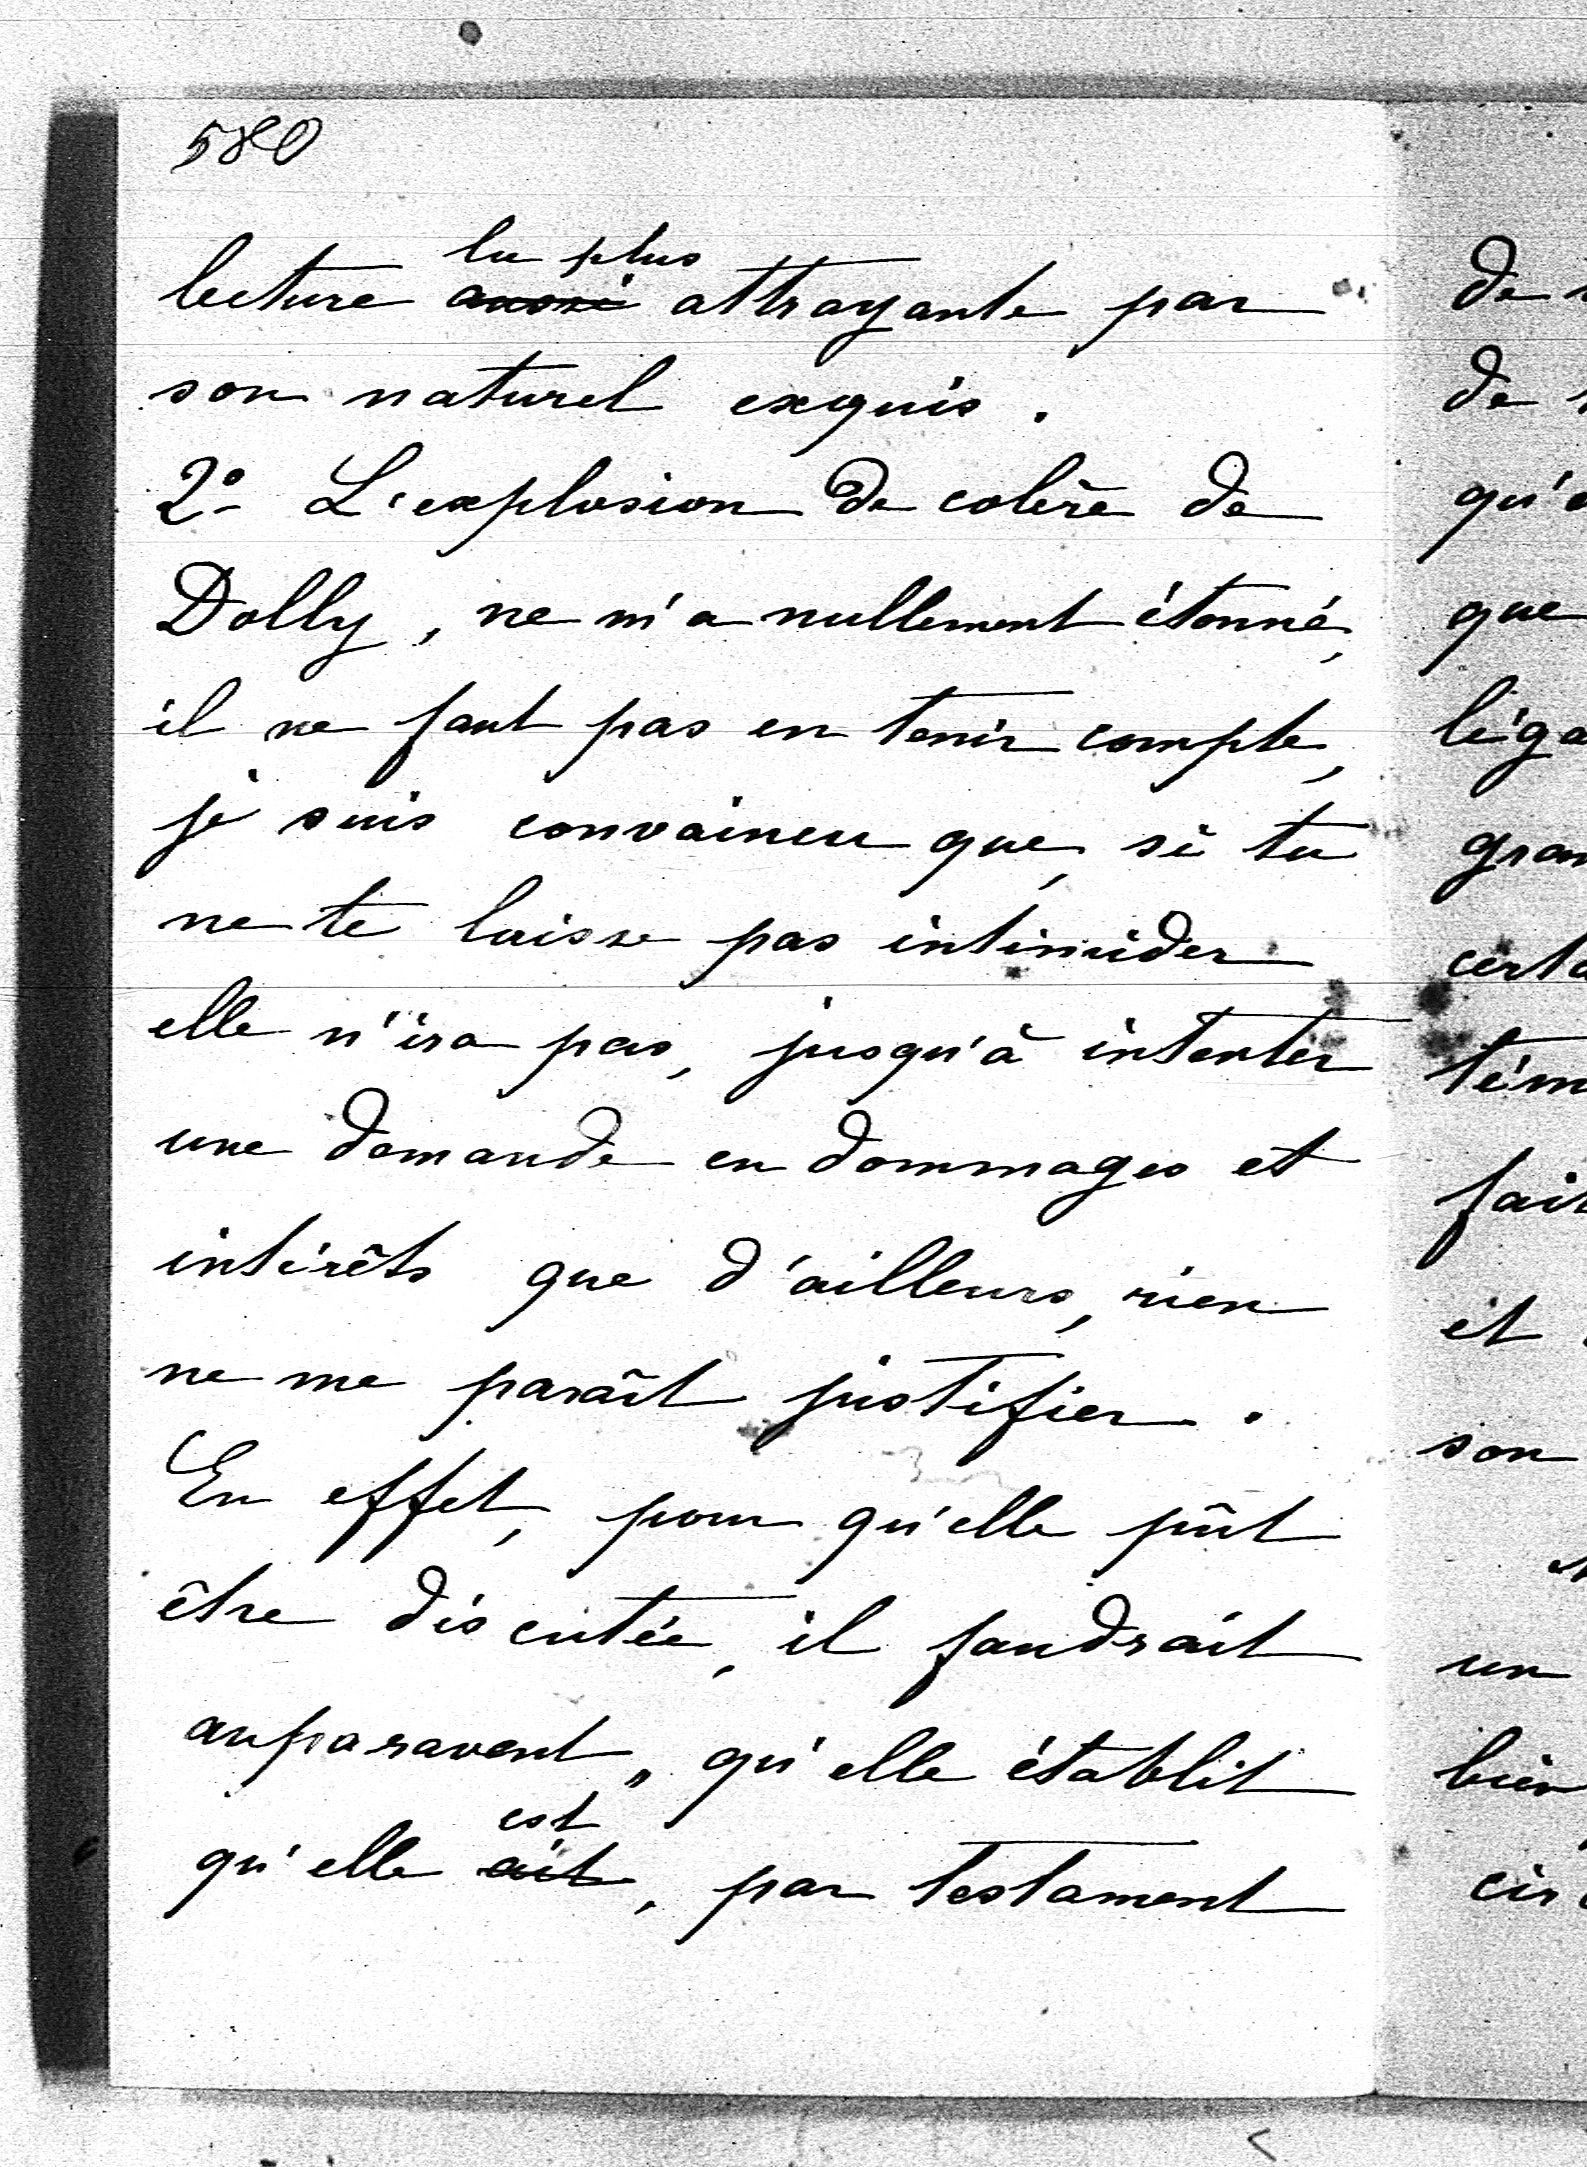 580
la plus
lecture aussi attrayante par
son naturel exquis.
2º- L'explosion de colère de
Dolly, ne m'a nullement étonné,
il ne faut pas en tenir compte,
je suis convaincu que, si tu
ne te laisse pas intimider
elle n'ira pas, jusqu'à intenter
une demande en dommages et
intérêts que d'ailleurs, rien
ne me paraît justifier.
En effet, pour qu'elle pût
être discutée, il faudrait
auparavent, qu'elle établit
est
qu'elle ait, par testament
de
de
qu'
que
léga
gran
certa
tém
fait
et
son
un
bien